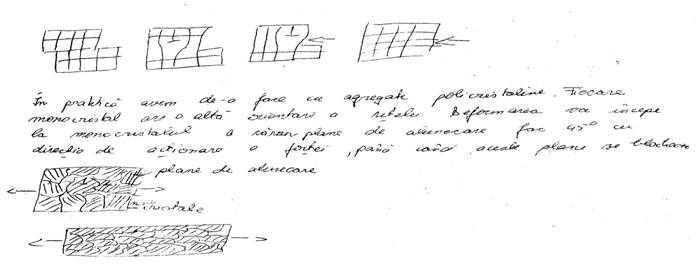 În praktică avem de-a face cu agregate policristaline. Fiecare
monocristal are o altă orientare a rețelei. Deformarea va începe
la monocristalul a căror plane de alunecare fac 45° cu
direcția de acționare a forței, până când aceste plane se blochează
plane de alunecare
cristale